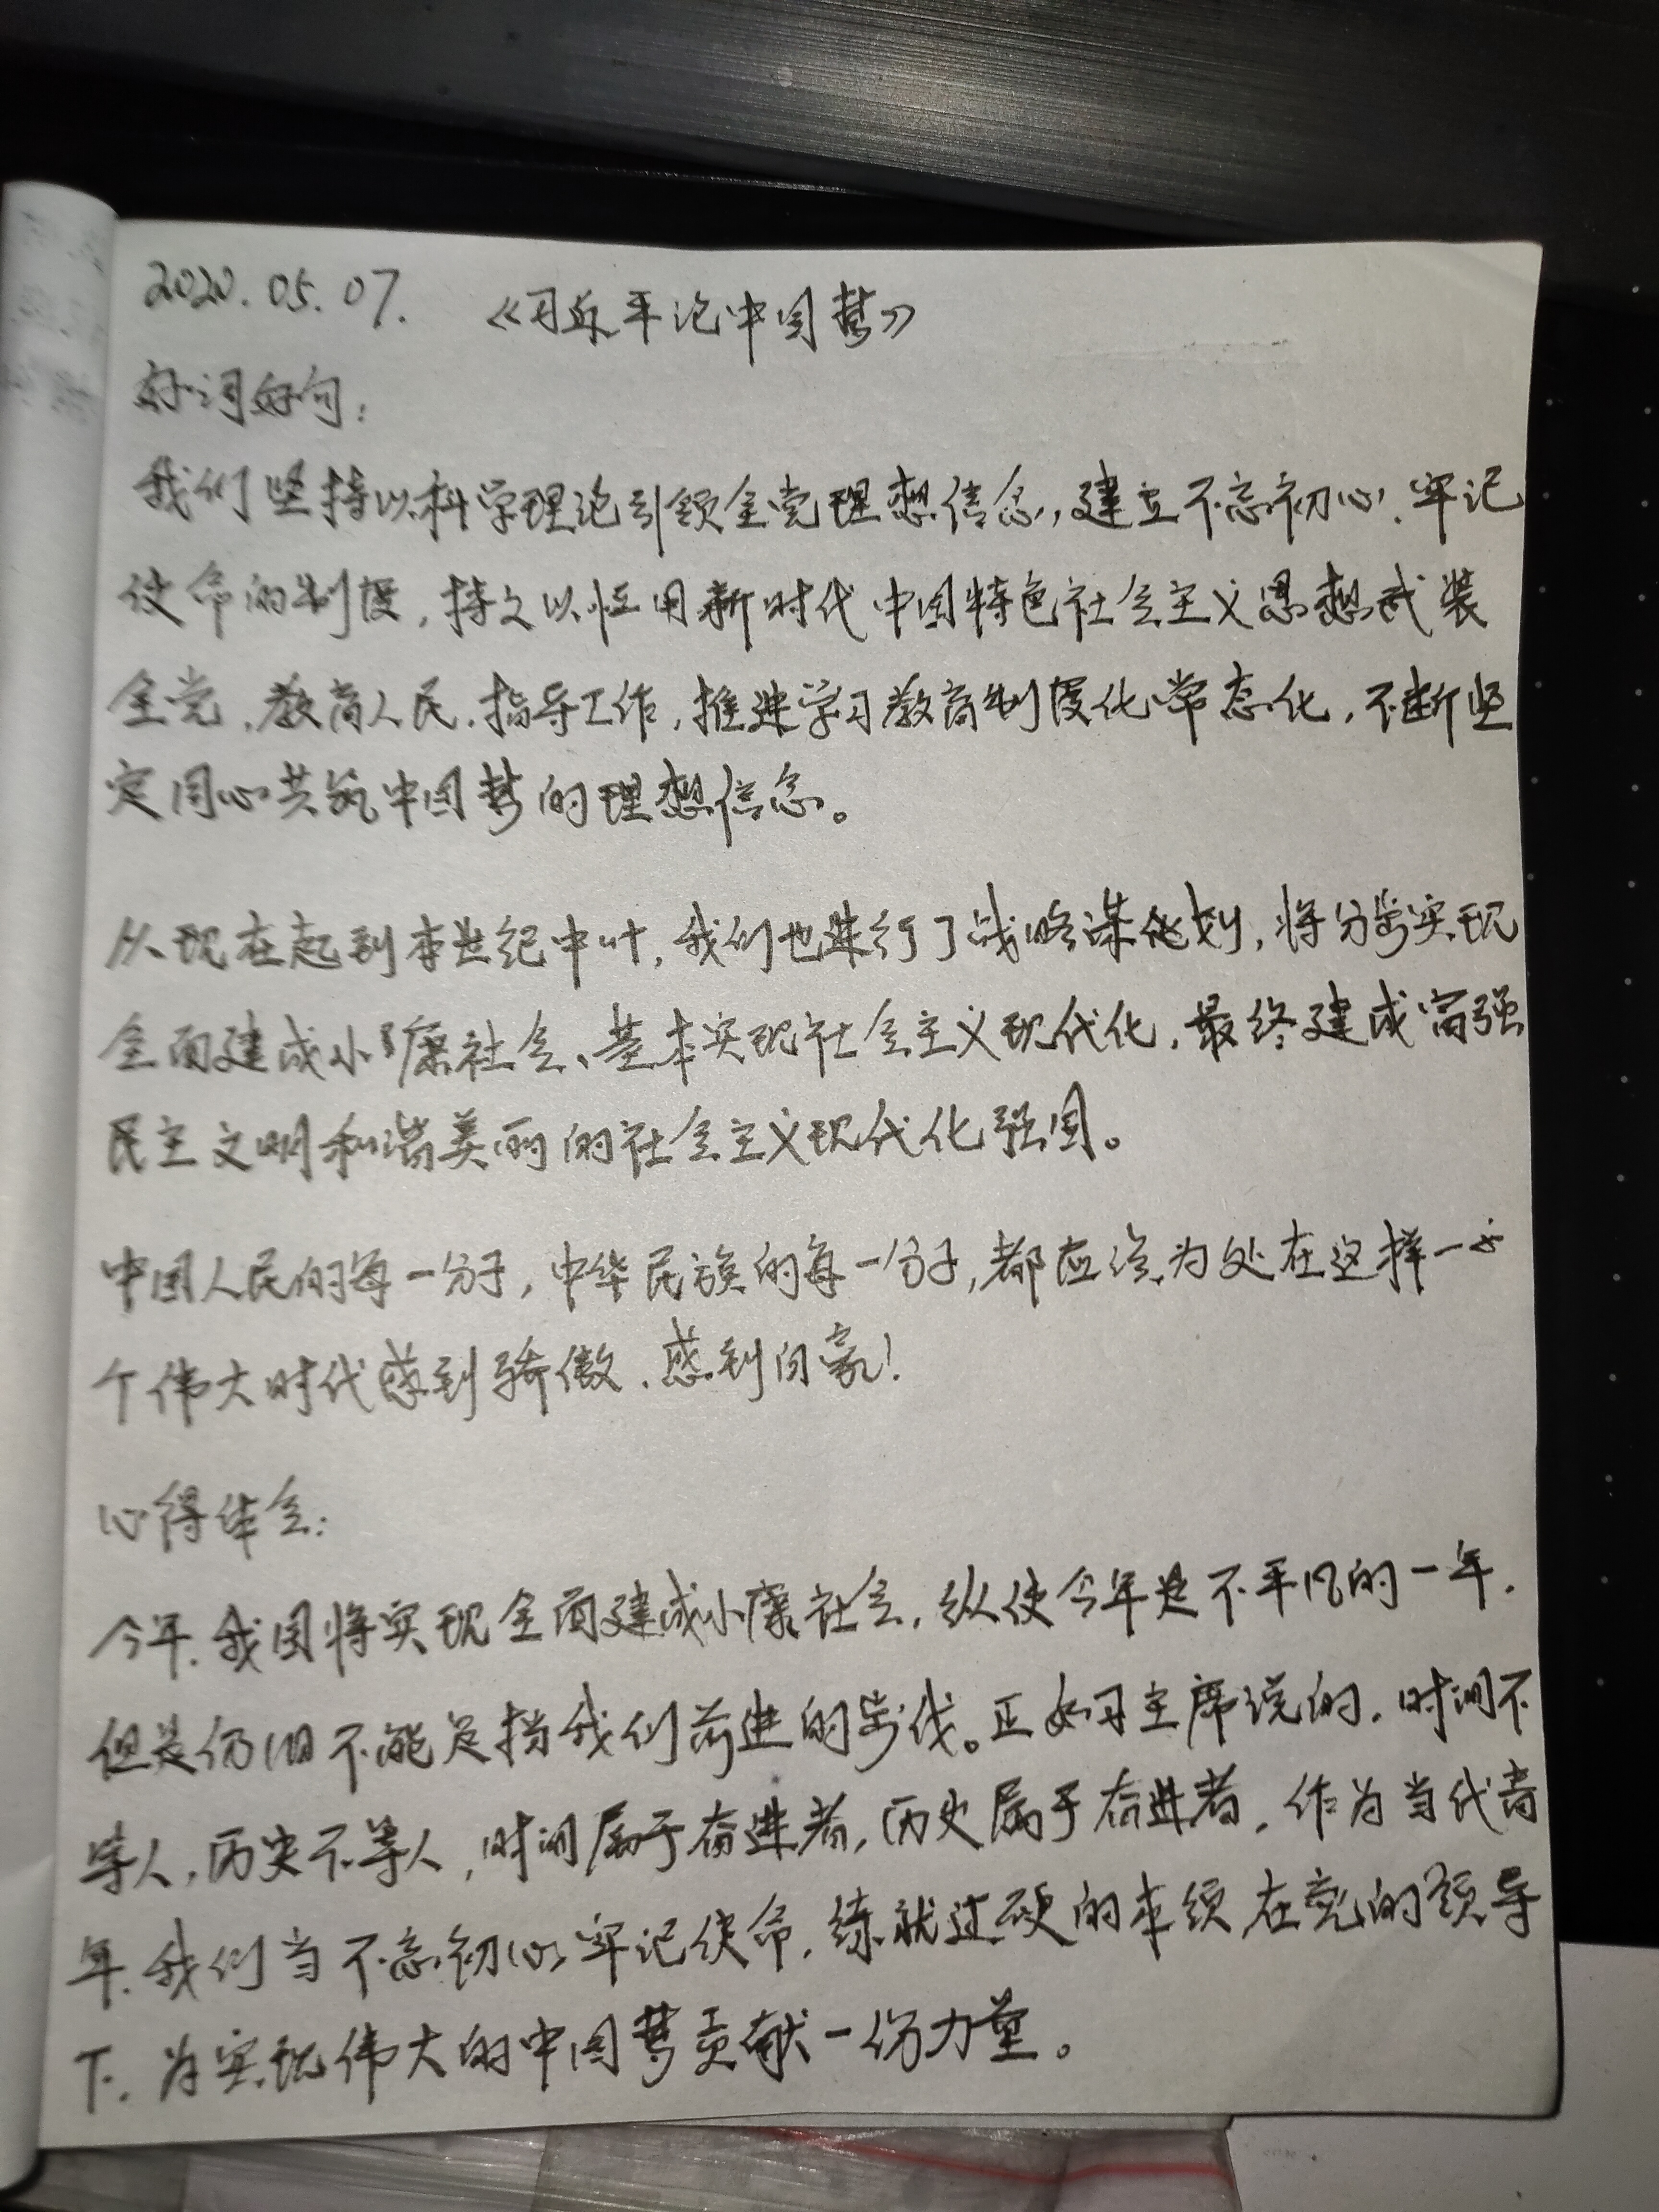 2020.05.07. 《习近平论中国梦》
好词好句：
我们坚持以科学理论引领全党理想信念，建立不忘初心、牢记
使命的制度，持之以恒用新时代中国特色社会主义思想武装
全党、教育人民、指导工作，推进学习教育制度化常态化，不断坚
定同心共筑中国梦的理想信念。
从现在起到本世纪中叶，我们也进行了战略谋划，将分步实现
全面建成小康社会、基本实现社会主义现代化，最终建成富强
民主文明和谐美丽的社会主义现代化强国。
中国人民的每一分子，中华民族的每一分子，都应该为处在这样一
个伟大时代感到骄傲、感到自豪！
心得体会：
今年，我国将实现全面建成小康社会，纵使今年是不平凡的一年，
但是仍旧不能足挡我们前进的步伐。正如习主席说的，时间不
等人，历史不等人，时间属于奋进者，历史属于奋进者，作为当代青
年，我们当不忘初心牢记使命，练就过硬的本领，在党的领导
下，为实现伟大的中国梦贡献一份力量。